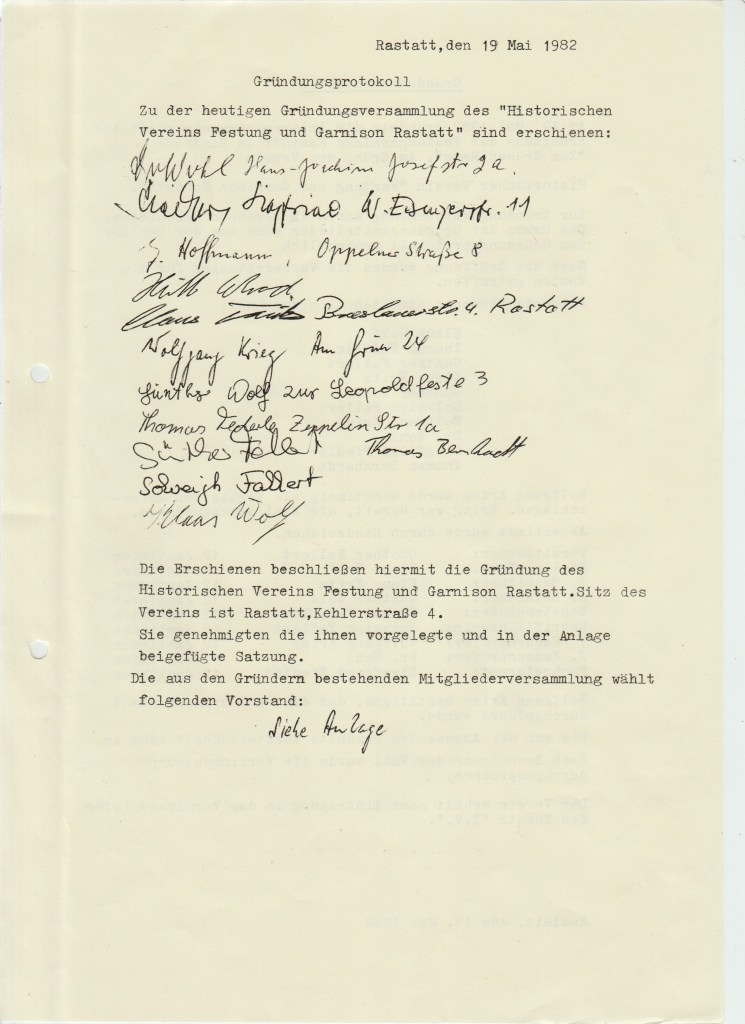 Rastatt,den 19 Mai 1982
Gründungsprotokoll
Zu der heutigen Gründungsversammlung des "Historischen
Vereins Festung und Garnison Rastatt" sind erschienen:
Hans-Joachim Josefstr 2a.
11
Hoffmann, Oppelner Straße 8
Klaus Breslauerstr. 4. Rastatt
Wolfgang Krieg Am Grün 24
Günther Wolf zur Leopoldfeste 3
Thomas Zeppelin Str 1a
Günther Fallert Thomas Bernhardt
Solveigh Fallert
Klaas Wolf
Die Erschienen beschließen hiermit die Gründung des
Historischen Vereins Festung und Garnison Rastatt.Sitz des
Vereins ist Rastatt,Kehlerstraße 4.
Sie genehmigten die ihnen vorgelegte und in der Anlage
beigefügte Satzung.
Die aus den Gründern bestehenden Mitgliederversammlung wählt
folgenden Vorstand:
Siehe Anlage